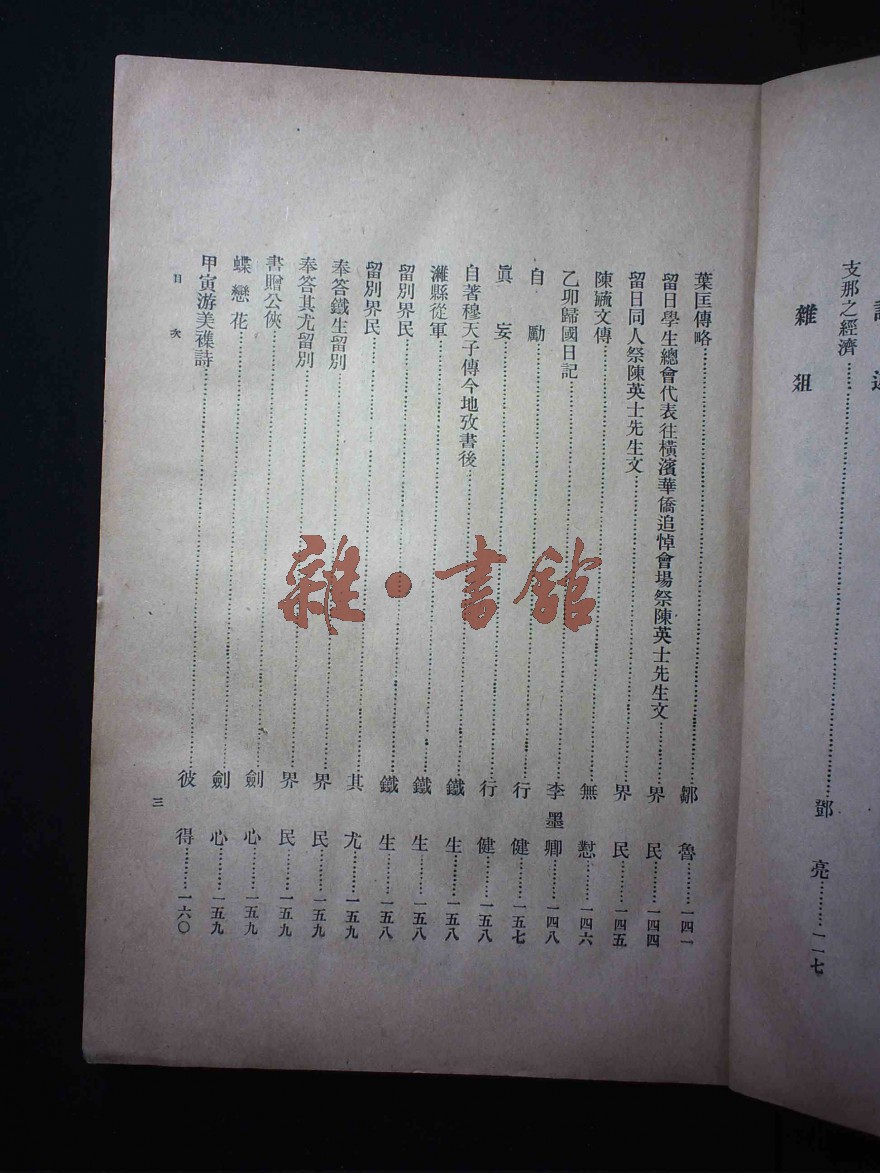 支那之經濟………鄧亮………一一七
雜俎
葉匡傳略………鄒魯………一四一
留日學生總會代表往橫濱華僑追悼會場祭陳英士先生文………界民………一四四
留日同人祭陳英士先生文………界民………一四五
陳毓文傳………無懟………一四六
乙卯歸國日記………李墨卿………一四八
自勵………行健………一五七
眞妄………行健………一五八
自著穆天子傳今地攷書後………鐵生………一五八
濰縣從軍………鐵生………一五八
留別界民………鐵生………一五八
留別界民………其尤………一五九
奉答鐵生留別………界民………一五九
奉答其尤留別………界民………一五九
書贈公俠………劍心………一五九
蝶戀花………劍心………一五九
甲寅游美襍詩………彼得………一六〇
目次
三
雜·書館